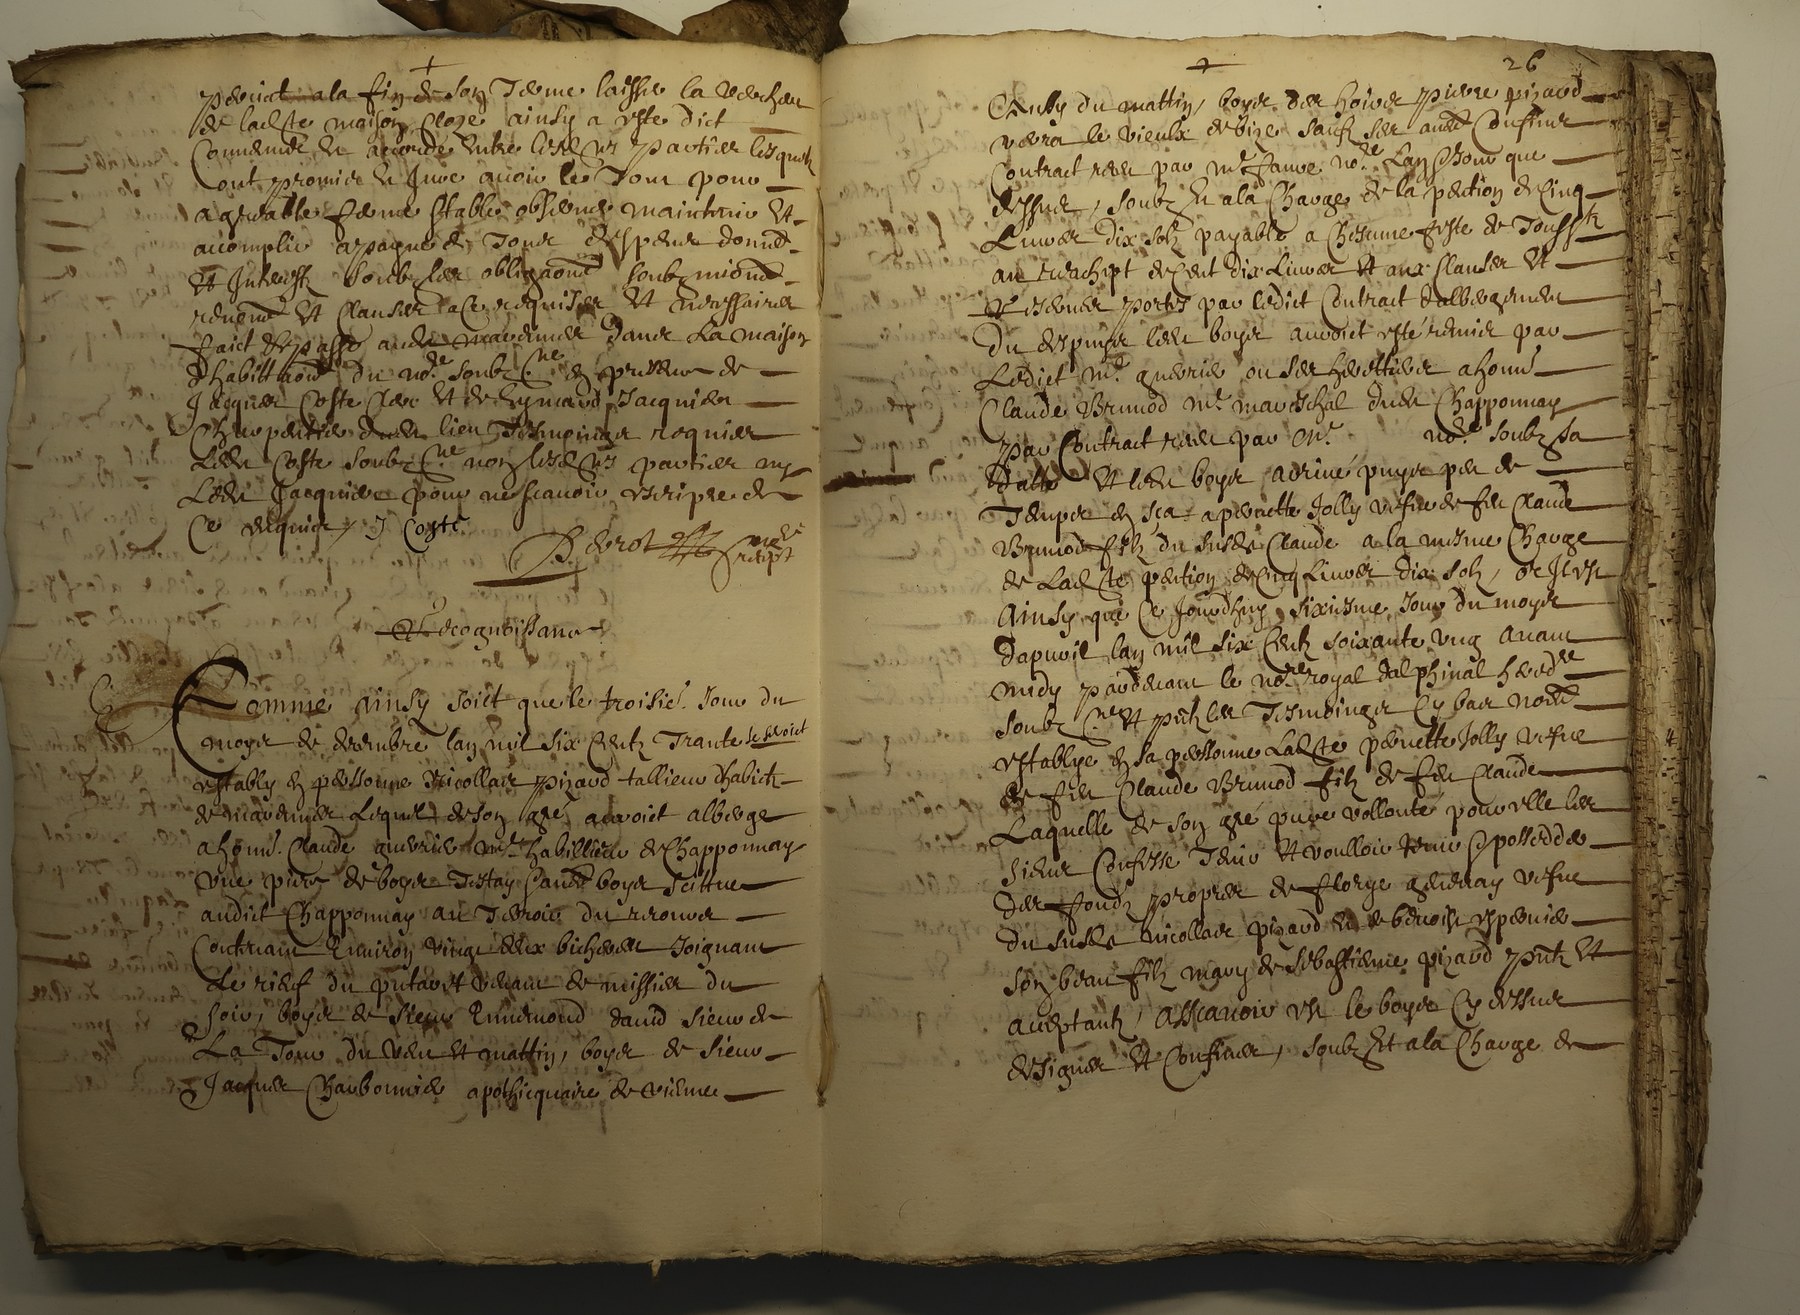 prenict a la fin de son Terme laisser la vercher
de ladte maison Cloze ainsy a este dict
Convenue et accordé Entre lesdtes Parties lesquelz
ont promis et Juré avoir le Tout pour
agreable ferme stable observer maintenir et
acomplir apayne de Tous despens domd
et Interestz soubz les obligaons soubzmions
renons et Clauses a Ce requises et necessaires
faict et passé audt marennes Dans La maison
Dhabittaon du nore soubzne en presence de
Jacques Coste Clerc et de Eymard Jacquier
Charpentier dudt lieu Tesmoingz requis
Ledt Coste soubzne non lesdtes parties ny
Ledt Jacquier pour ne scavoir escripre de
Ce requis / J Coste
Berot nore recept
Recognoissance
Comme ainsy soict que le troisie Jour du
moys de decembre lan mil six Centz Trante se seroict
estably en personne Nicollas pizard tallieur dhabictz
de marennes Lequel de son gré auroict alberge
a honn. Claude guerrie mre habillieur de Chapponnay
une piece de boys Testay Cand boys scittue
audict Chapponnay au Terroir du
Contenant Environ vingt deux bicherees Joignant
Le rief du putavet venant de missies du
soir, boys de sieur Ennemond david sieur de
La Tour du vent et mattin, boys de sieur
Jacques Charbonnie apothicquaire de vienne
26
Aussy du mattin, boys des hoirs pierre pizard
vers le vieulx de bize sauf ses aues Confins
Contract receu par me faure nore Lan et Jour que
dessus, soubz et a la Charge de la pention de Cinq
Livres dix solz payable a Chesune feste de Toussts
au reachept de Cent dix Livres et aux Clauses et
reserves portés par ledict Contract dalbergement
Du despuis ledt boys auroict esté remis par
Ledict me guerrie ou ses herettiers a honn
Claude Brunod me mareschal dudt Chapponnay
par Contract receu par Me nore soubz sa
datte et ledt boys arrivé puys peu de
Temps en sca a pernette Jolly vefve de feu Claude
Brunod filz du susdt Claude a la mesme Charge
de Ladte pention de Cinq Livres dix solz, or Il est
Ainsy que Ce Jourdhuy sixiesme Jour du moys
dapvril lan mil six Centz soixante ung avant
midy pardevant le nore royal dalphinal heredre
soubzne et puitz les Tesmoingz Cy bas nomes
establye en sa personne Ladte pernette Jolly vefve
de feu Claude Brunod filz de feu Claude
Laquelle de son gré pure vollonté pour elle les
siens Confesse Tenir et voulloir tenir et posseder
Des fondz propres de florye genevay vefve
du susdt nicollas pizard et de benoist espernie
son beau filz mary de sebastienne pizard puitz et
acceptantz, Asscavoir est le boys Cy dessus
designes et Confines, soubz Et a la Charge de